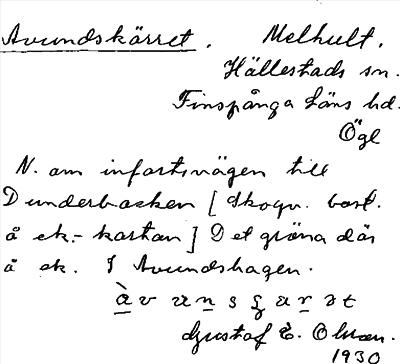 Avundskärret. Melhult.
Hällestads sn.
Finspånga läns hd.
Ögl
N. om infartsvägen till
Dunderbacken [Skogv. bost.
å ek.-kartan] Det gröna där
å ek. I Avundshagen.
àvunsʂæ̀rət
Gustaf E. Olsson.
1930